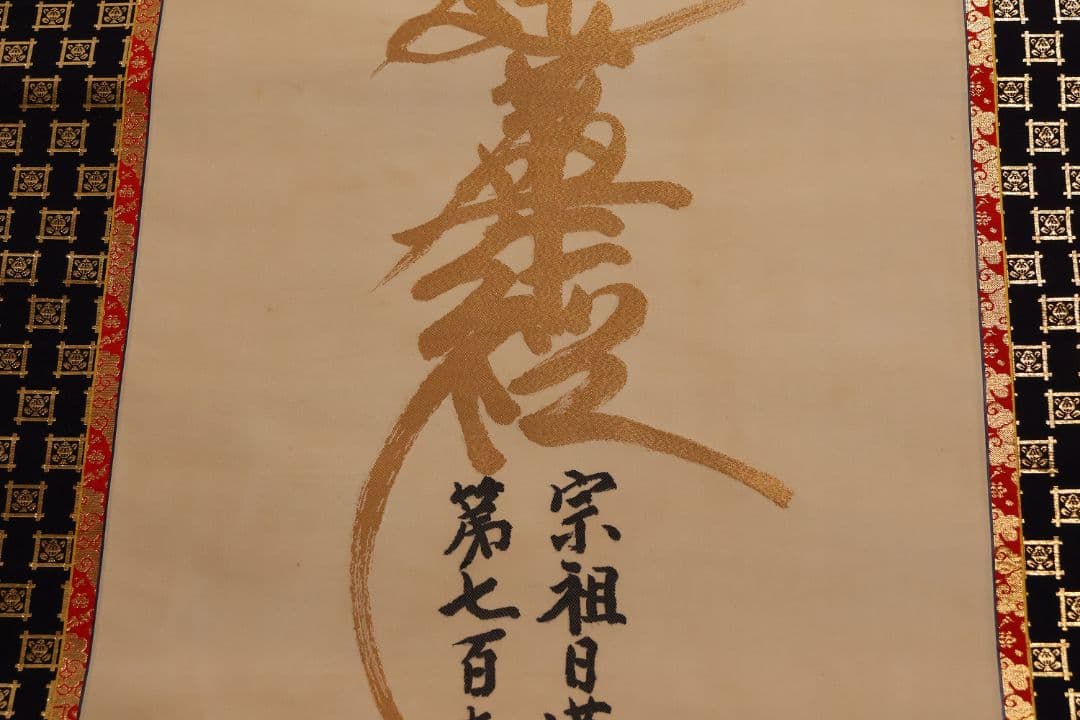 華経
宗祖日
第七百